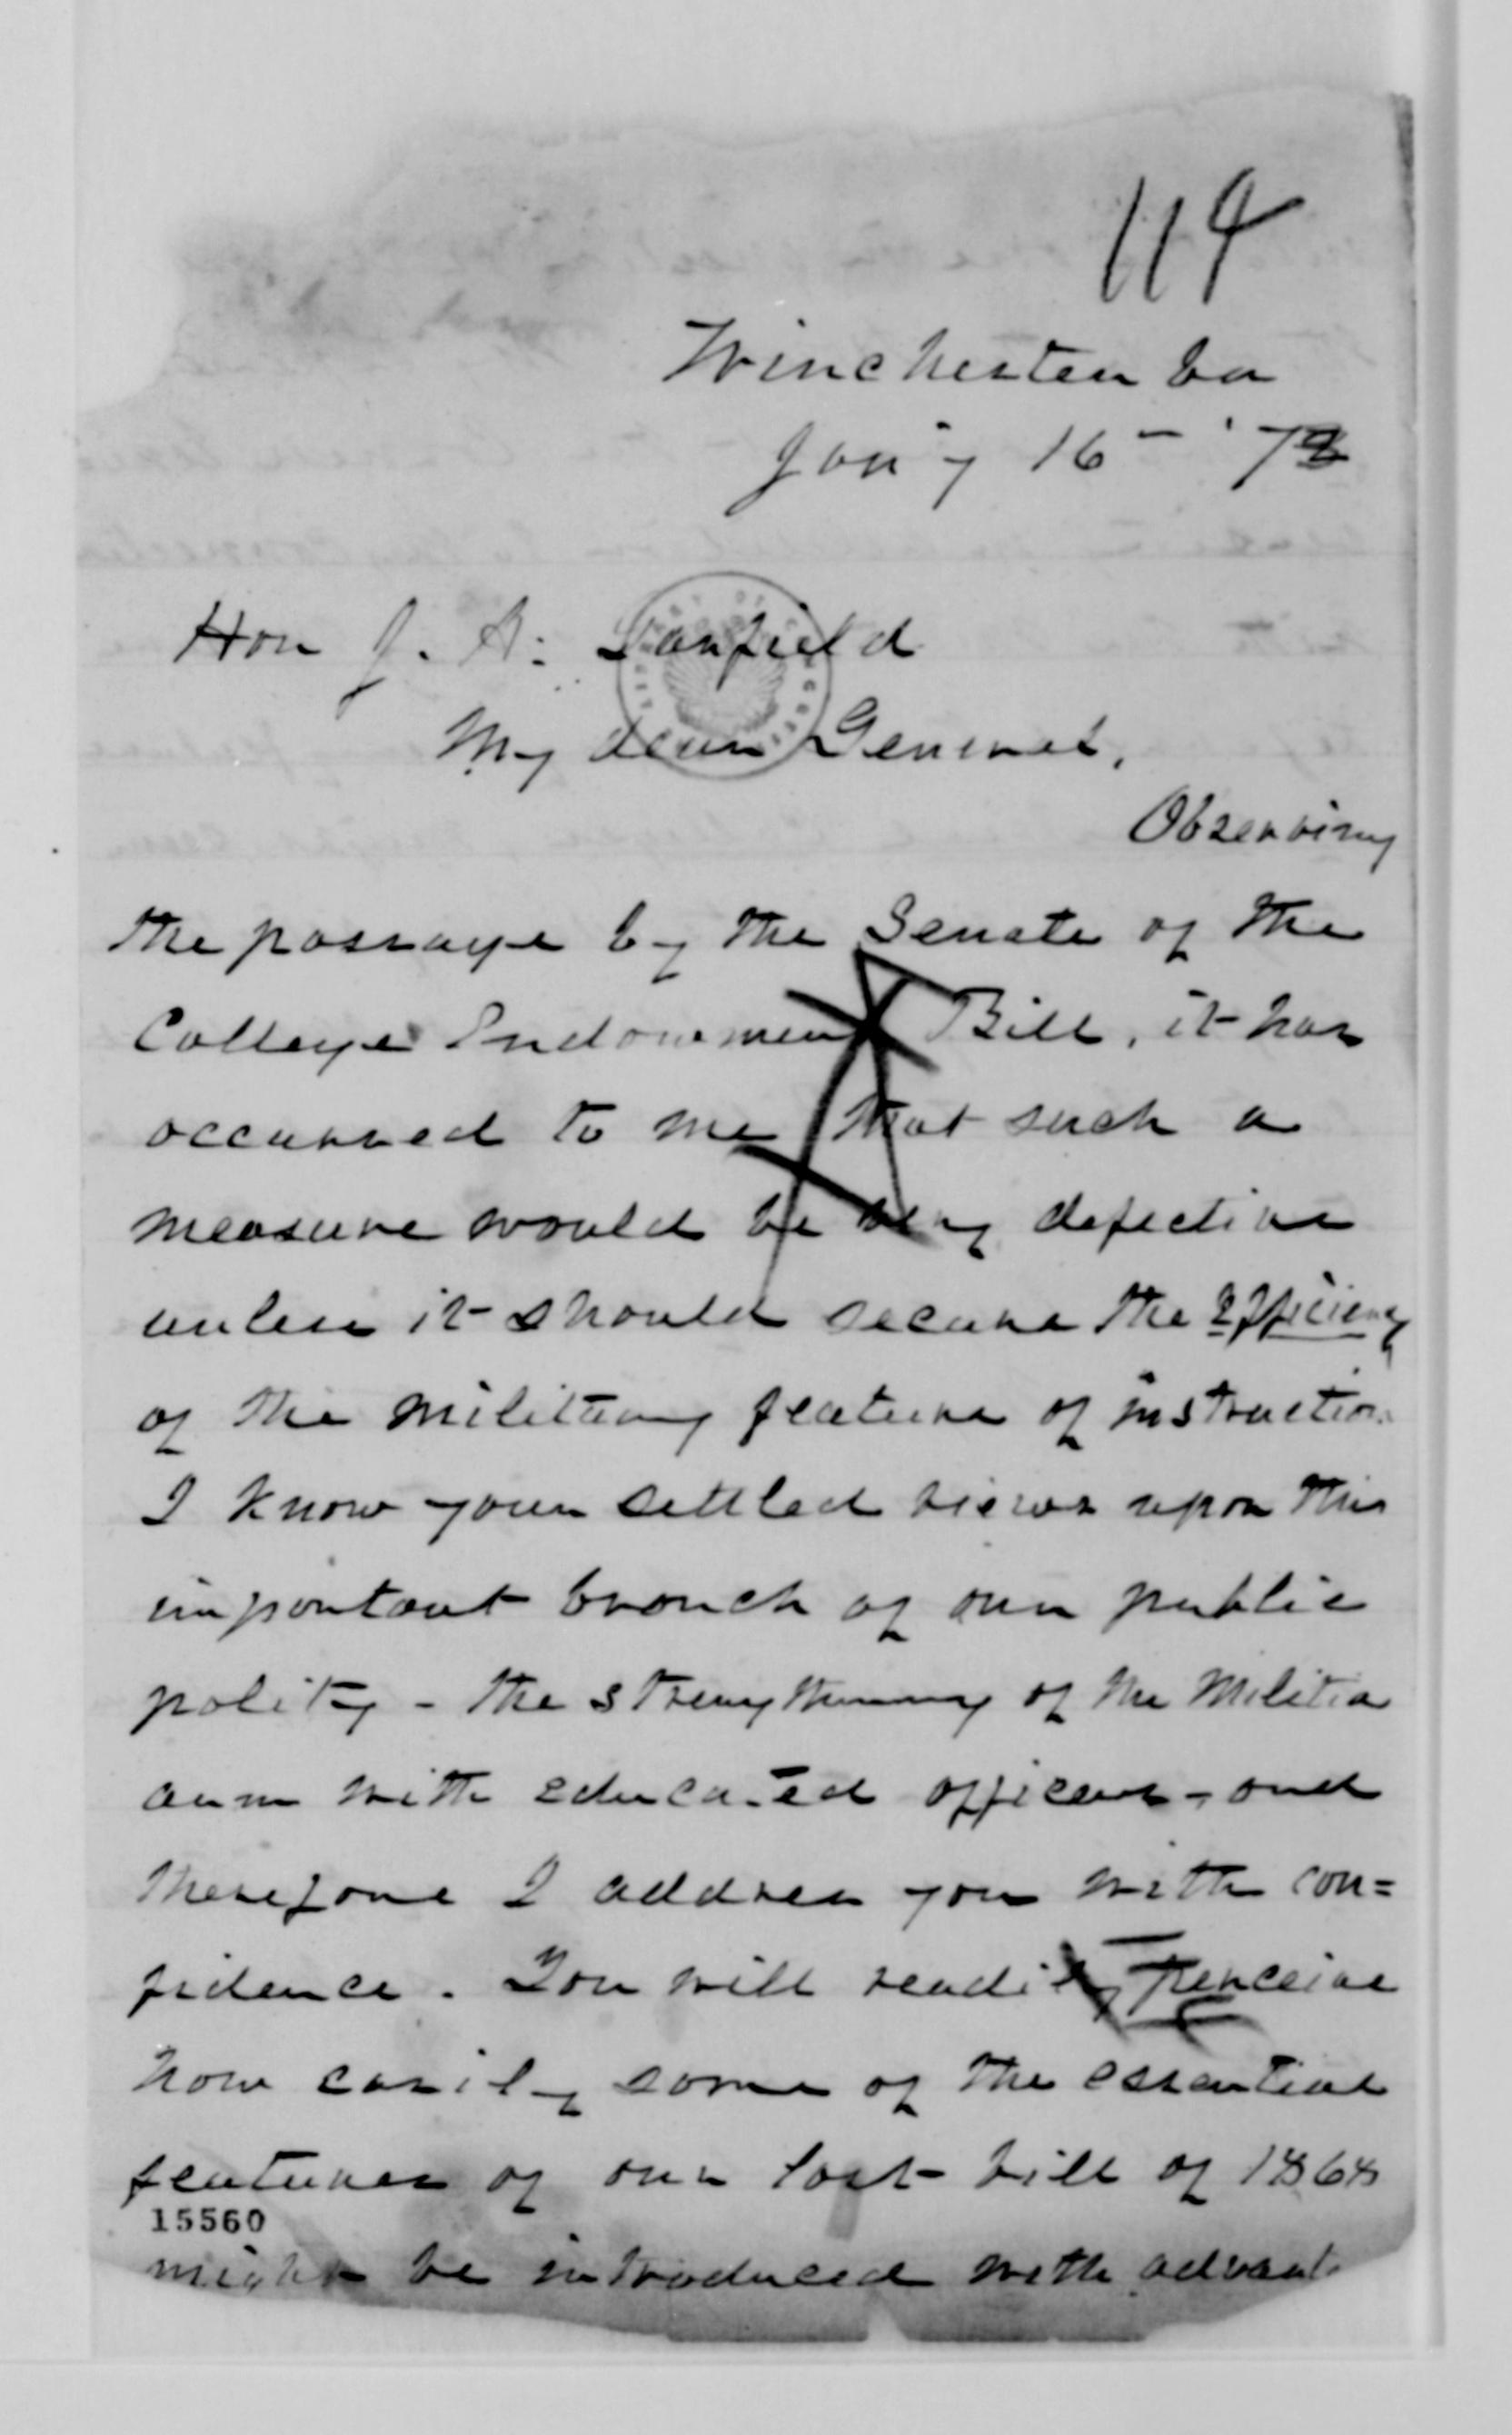 114
Winchester Va
Jan'y 16 - '73
Hon J. A. Garfield
My dear General,
Observing
the passage by the Senate of the
College Endowment Bill, it has
occurred to me that such a
measure would be very defective
unless it should secure the efficiency
of the military feature of instruction.
I know your settled views upon this
important branch of our public
polity - the strengthening of the Militia
arm with educated officers - and
therefore I address you with con=
fidence. You will readily perceive
how easily some of the essential
features of our lost bill of 1868
15560
might be introduced with advant